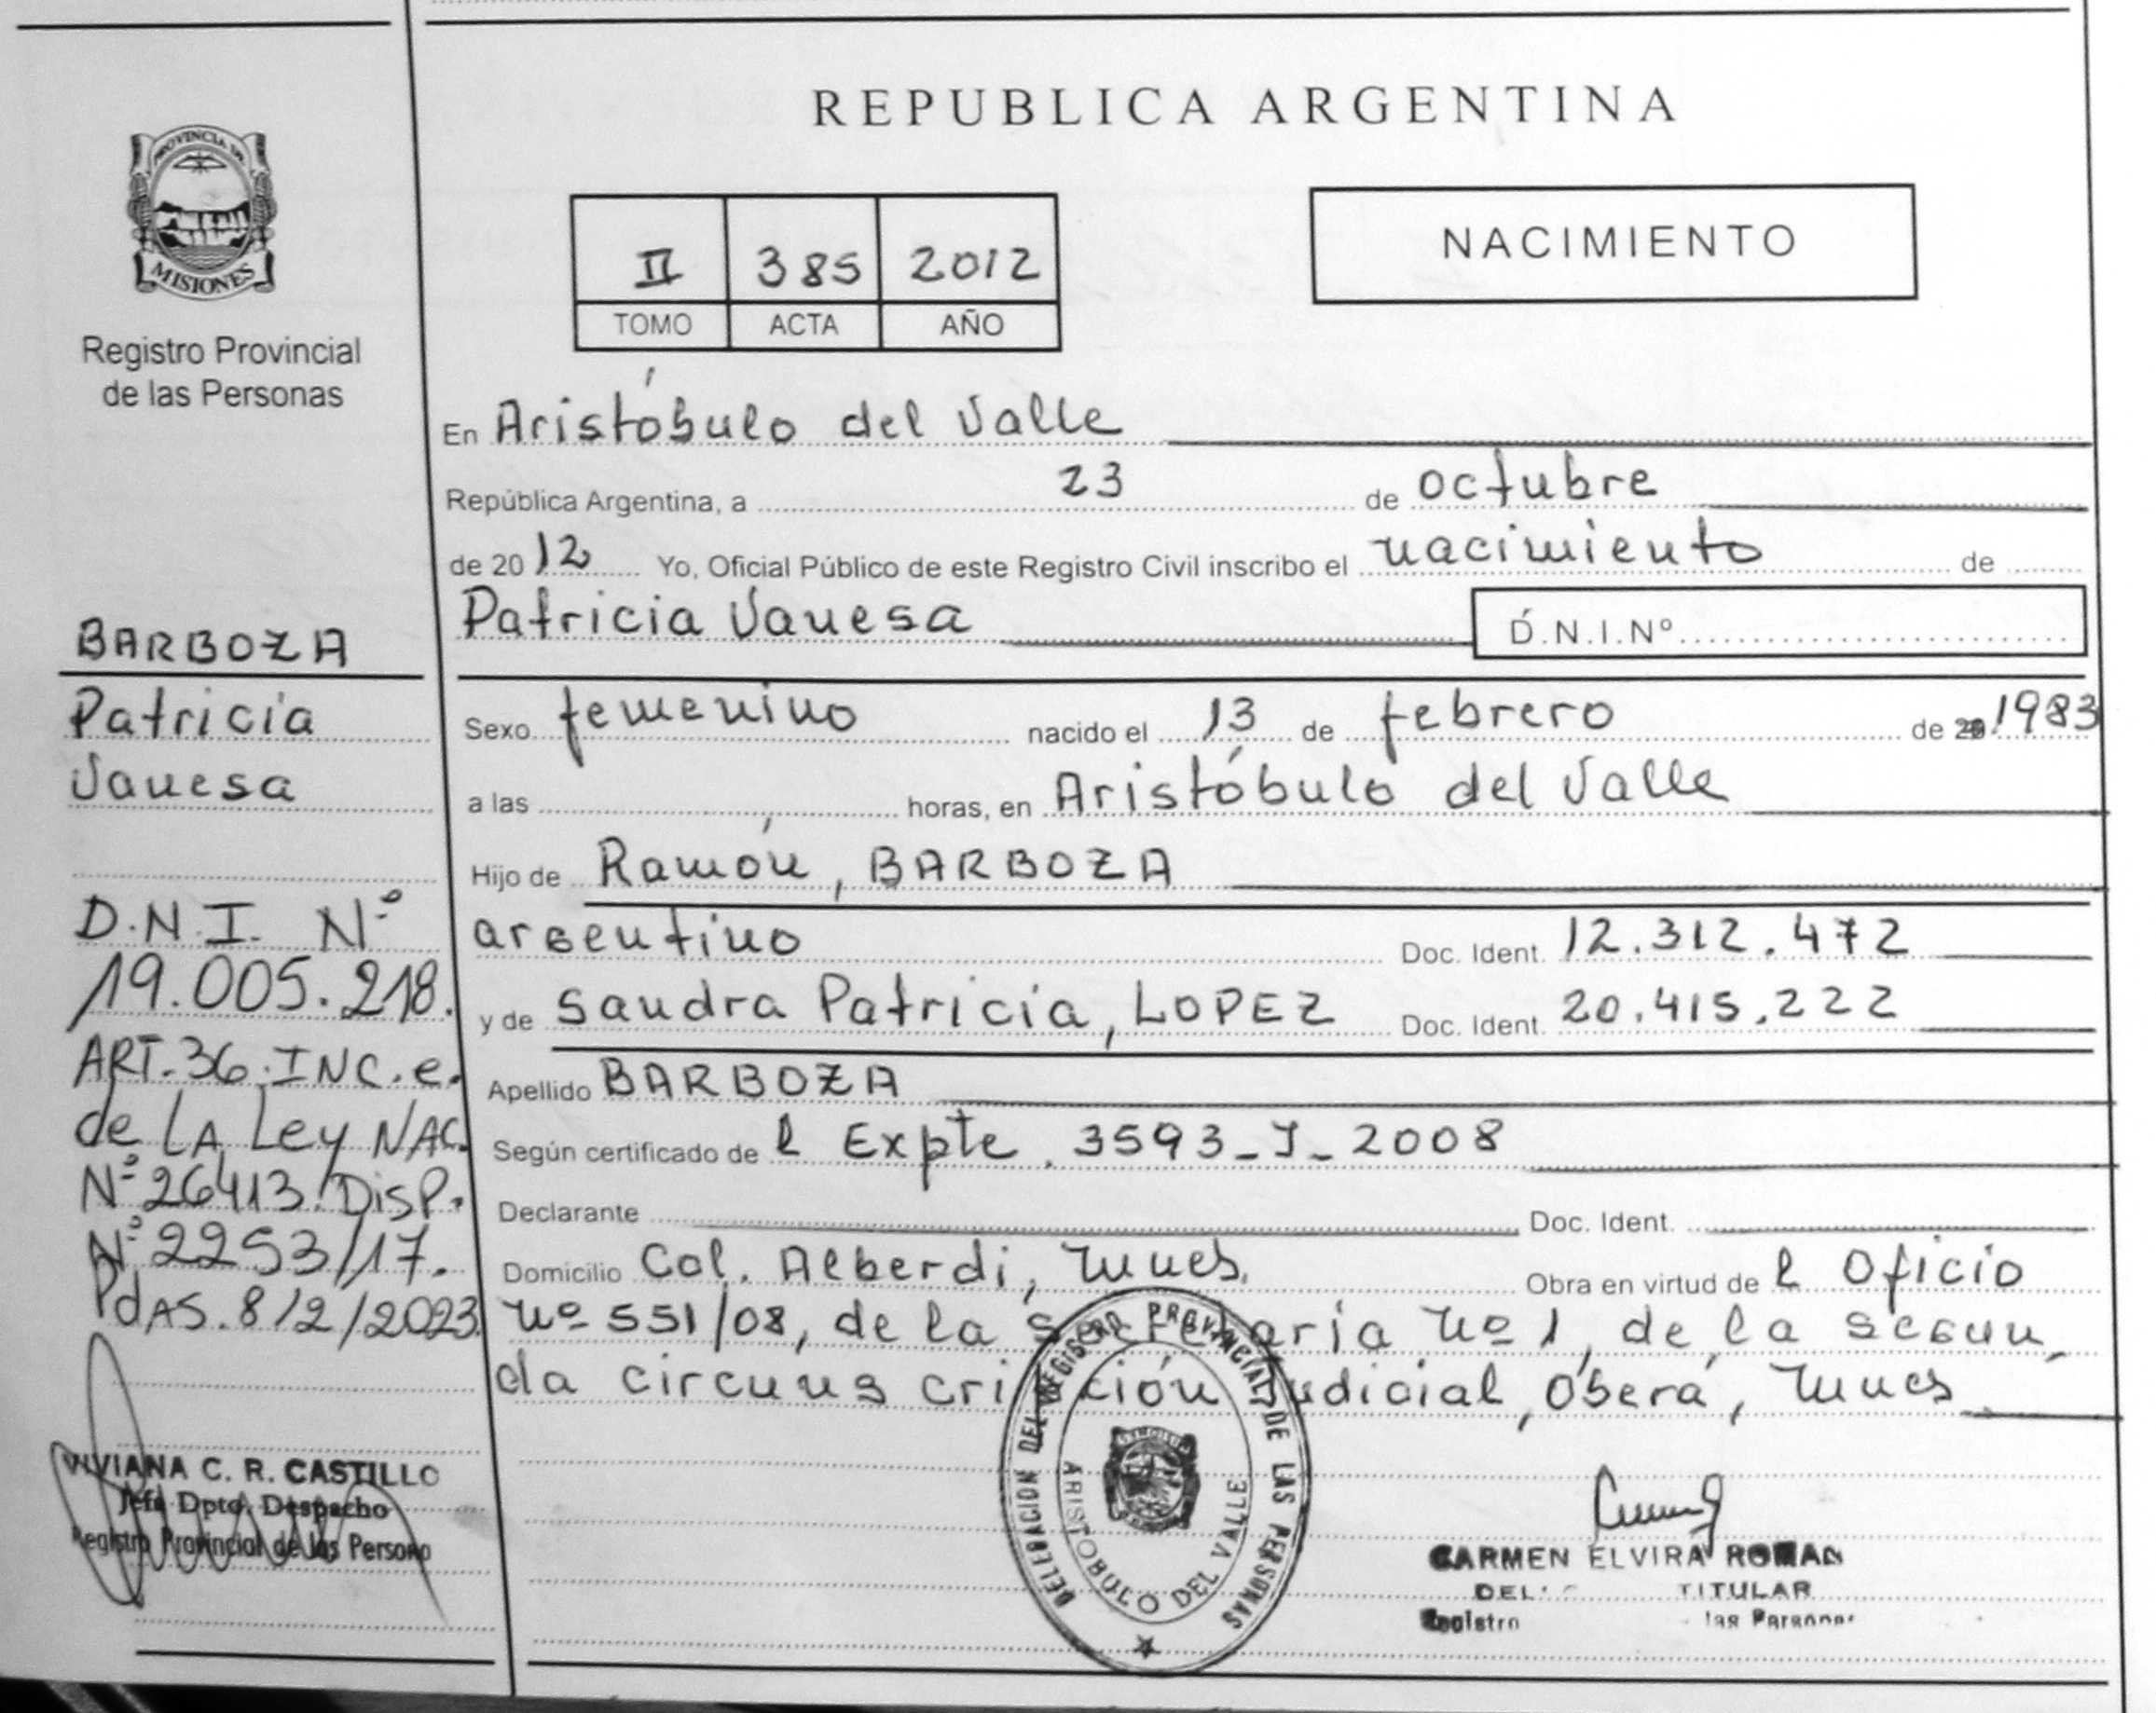 PROVINCIA DE
MISIONES
Registro Provincial
de las Personas
BARBOZA
Patricia
Vanesa
D.N.I. Nº
19.005.218.
ART.36.INC.e.
de LA Ley NAC.
Nº26413.DISP.
Nº2253/17.
PdAS.8/2/2023
VIVIANA C. R. CASTILLO
Jefa Dpto. Despacho
Registro Provincial de las Persona
REPUBLICA ARGENTINA
II 385 2012
TOMO ACTA AÑO
NACIMIENTO
En Aristóbulo del Valle
República Argentina, a 23 de octubre
de 2012 Yo, Oficial Público de este Registro Civil inscribo el nacimiento de
Patricia Vanesa D.N.I.Nº
Sexo femenino nacido el 13 de febrero de 1983
a las horas, en Aristóbulo del Valle
Hijo de Ramón, BARBOZA
argentino Doc. Ident. 12.312.472
y de Sandra Patricia, LOPEZ Doc. Ident. 20.415.222
Apellido BARBOZA
Según certificado de l Expte. 3593_J_2008
Declarante Doc. Ident.
Domicilio Col. Alberdi, Mnes. Obra en virtud de l Oficio
Nº 551/08, de la Secretaría Nº 1, de la segun_
da circunscripción judicial, Oberá, Mnes
DELEGACION DEL REGISTRO PROVINCIAL DE LAS PERSONAS
ARISTOBULO DEL VALLE
CARMEN ELVIRA ROMAN
TITULAR
Registro las Personas